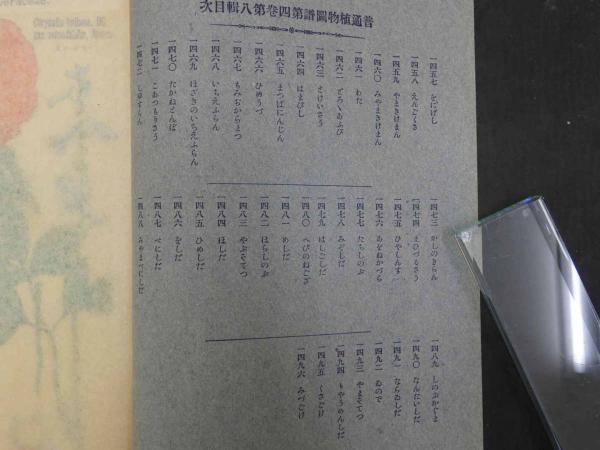 普通植物圖譜第四卷第八輯目次
一四五七 をにげし
一四五八 えんごさく
一四五九 やまきけまん
一四六〇 みやまきけまん
一四六一 わた
一四六二 とろゝあふひ
一四六三 とけいさう
一四六四 はまびし
一四六五 まつばにんじん
一四六六 ひめうづ
一四六七 もみぢからまつ
一四六八 いちえふらん
一四六九 ほざきのいちえふらん
一四七〇 たかねとんぼ
一四七一 こあつもりさう
一四七二 しゆすらん
一四七三 かしのきらん
一四七四 えびづるさう
一四七五 ひやしんす
一四七六 あをねかづら
一四七七 たちしのぶ
一四七八 みぞしだ
一四七九 はしごしだ
一四八〇 へびのねござ
一四八一 めしだ
一四八二 ほらしのぶ
一四八三 やぶそてつ
一四八四 ほしだ
一四八五 ひめしだ
一四八六 をしだ
一四八七 べにしだ
一四八八 みやまべにしだ
一四八九 しのぶかぐま
一四九〇 なんたいしだ
一四九一 ならゐしだ
一四九二 ゐので
一四九三 やまそてつ
一四九四 もやうめんしだ
一四九五 くさごけ
一四九六 みづごけ